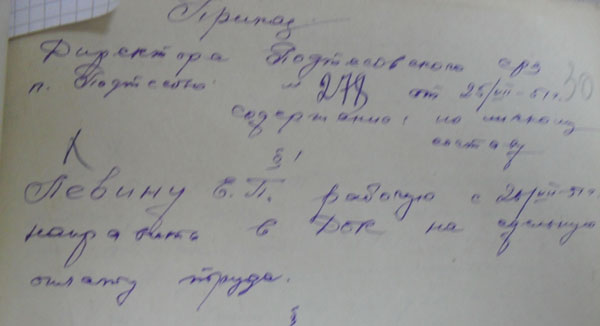 Приказ
Директора Подтесовского срз 30
п. Подтесово № 278 от 25/VII-51г.
содержание: по личному
составу
§ 1
Левину Е. П. рабочую с 26/VII-51г.
направить в ДОК на сдельную
оплату труда.
§